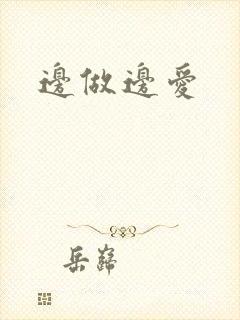 邊做邊愛
岳巋